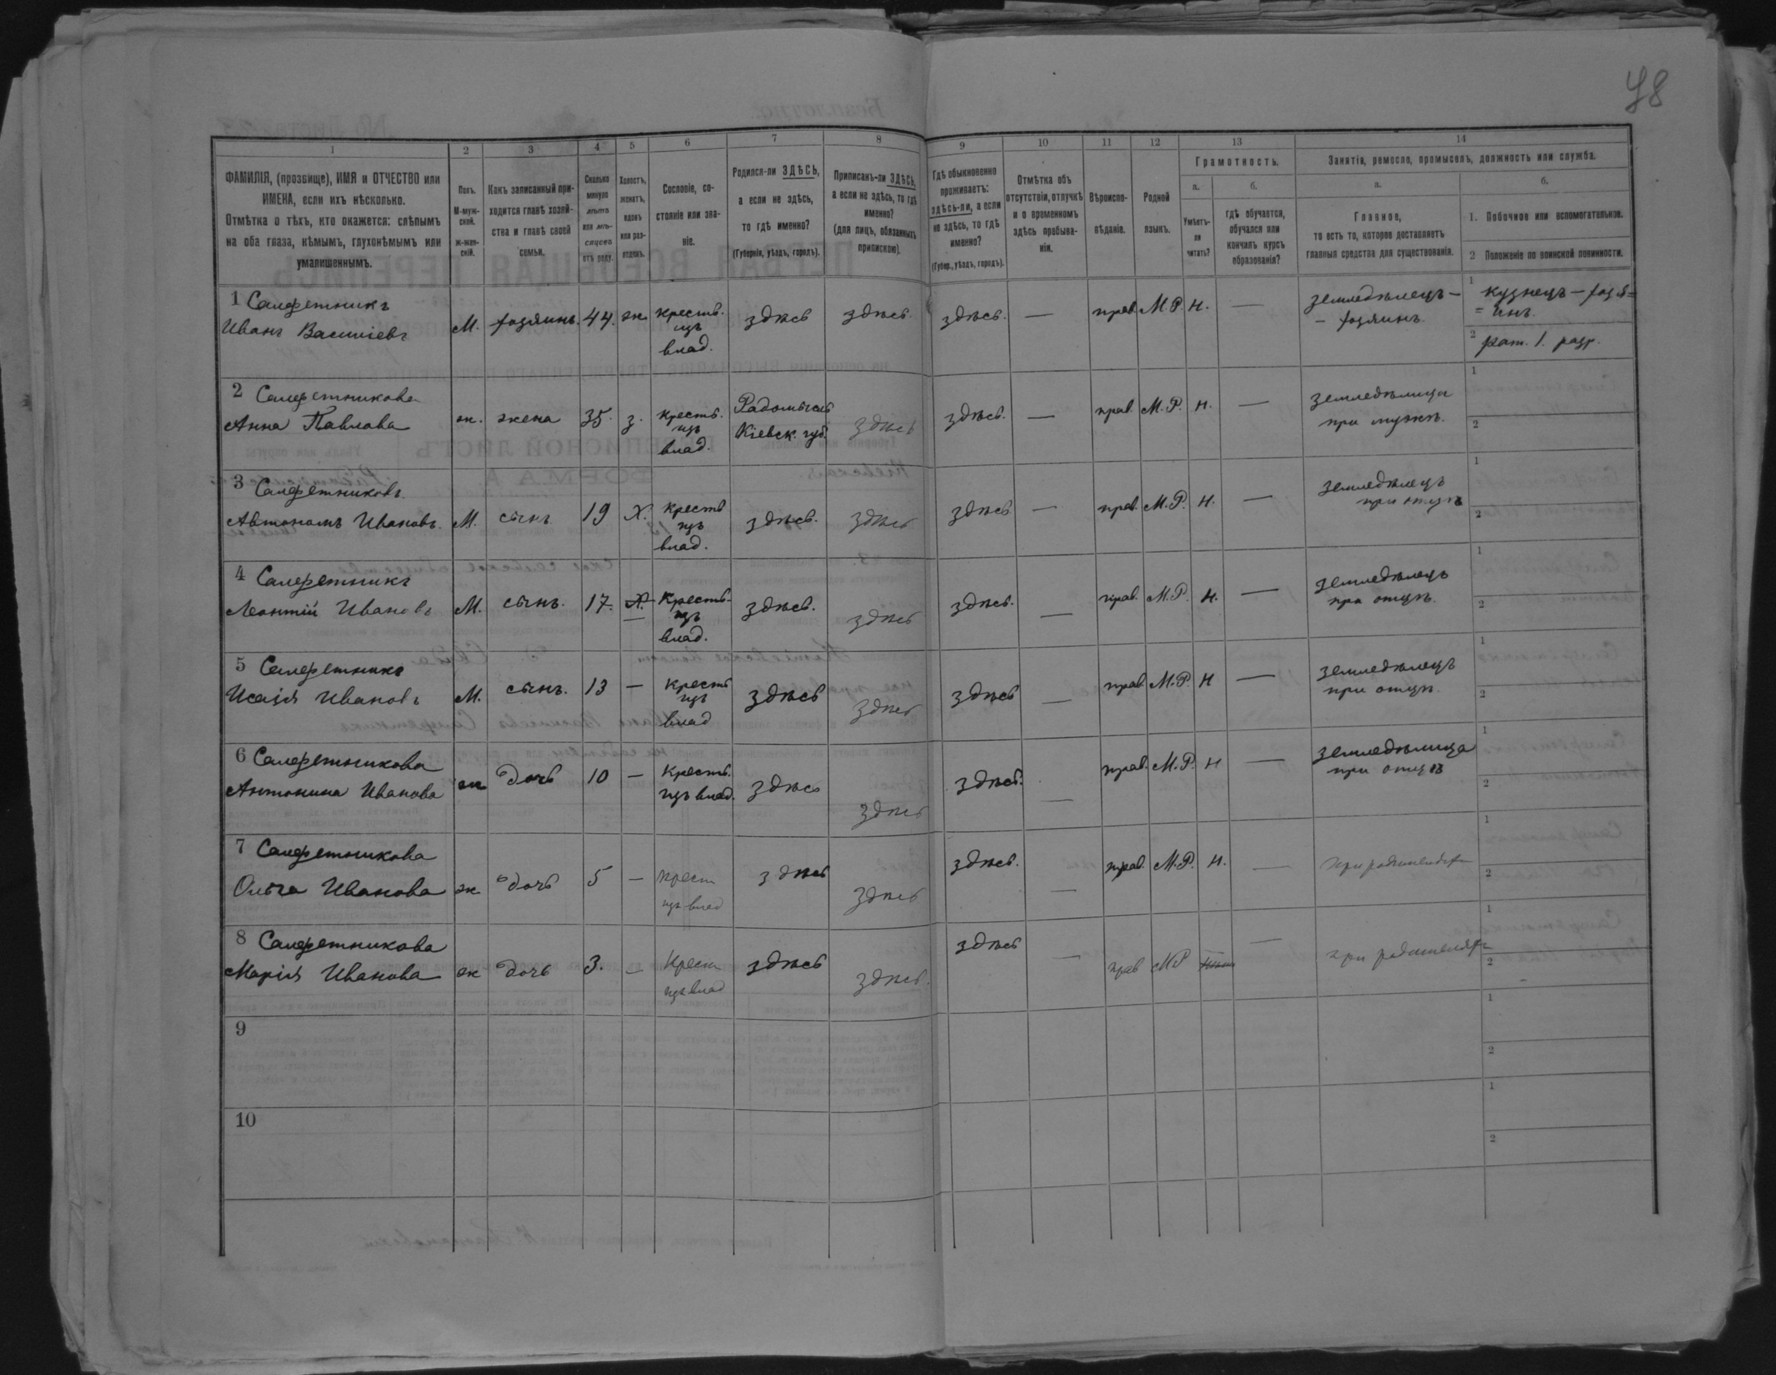 48
1
2
3
4
5
6
7
8
9
10
11
12
13
14
ФАМИЛІЯ, (прозвище), ИМЯ и ОТЧЕСТВО или
ИМЕНА, если ихъ нѣсколько.
Отмѣтка о тѣхъ, кто окажется: слѣпымъ
на оба глаза, нѣмымъ, глухонѣмымъ или
умалишеннымъ.
Полъ.
М-муж-
ской.
ж-жен-
скій.
Какъ записанный при-
ходится главѣ хозяй-
ства и главѣ своей
семьи.
Сколько
минуло
лѣтъ
или мѣ-
сяцевъ
отъ роду.
Холостъ,
женатъ,
вдовъ
или раз-
веденъ.
Сословіе, со-
стояніе или зва-
ніе.
Родился-ли ЗДѢСЬ,
а если не здѣсь,
то гдѣ именно?
(Губернія, уѣздъ, городъ).
Приписанъ-ли ЗДѢСЬ,
а если не здѣсь, то гдѣ
именно?
(для лицъ, обязанныхъ
припискою).
Гдѣ обыкновенно
проживаетъ:
здѣсь-ли, а если
не здѣсь, то гдѣ
именно?
(Губер., уѣздъ, городъ).
Отмѣтка объ
отсутствіи, отлучкѣ
и о временномъ
здѣсь пребыва-
ніи.
Вѣроиспо-
вѣданіе.
Родной
языкъ.
Грамотность.
а.
б.
Умѣетъ-
ли
читать?
гдѣ обучается,
обучался или
кончилъ курсъ
образованія?
Занятіе, ремесло, промыселъ, должность или служба.
а.
б.
Главное,
то есть то, которое доставляетъ
главныя средства для существованія.
1. Побочное или вспомогательное.
2 Положеніе по воинской повинности.
1 Салфетникъ
Иванъ Василіевъ
М.
хозяинъ.
44.
ж
крестъ.
изъ
влад.
здѣсь
здѣсь.
здѣсь.
—
прав.
М.Р.
н.
—
земледѣлецъ —
— хозяинъ.
1
кузнецъ — хозя=
= инъ
2
рат. 1. разр.
2 Салфетникова
Анна Павлова
ж.
жена
35.
з.
крестъ.
изъ
влад.
Радомысль
Кіевск. губ.
здѣсь
здѣсь.
—
прав.
М.Р.
н.
—
земледѣлица
при мужѣ.
1
2
3 Салфетниковъ
Автономъ Ивановъ.
М.
сынъ
19
Х.
крестъ
изъ
влад.
здѣсь.
здѣсь
здѣсь
—
прав.
М.Р.
н.
—
земледѣлецъ
при отцѣ
1
2
4 Салфетникъ
Леонтій Ивановъ
М.
сынъ.
17.
Х.
—
Крестъ.
изъ
влад.
здѣсь.
здѣсь
здѣсь.
—
прав.
М.Р.
н.
—
земледѣлецъ
при отцѣ.
1
2
5 Салфетникъ
Исаія Ивановъ
М.
сынъ.
13
—
крестъ
изъ
влад
здѣсь
здѣсь
здѣсь
—
прав.
М.Р.
н
—
земледѣлецъ
при отцѣ.
1
2
6 Салфетникова
Антонина Иванова
ж
дочь
10
—
крестъ.
изъ влад.
здѣсь
здѣсь
здѣсь.
—
прав.
М.Р.
н
—
земледѣлица
при отцѣ
1
2
7 Салфетникова
Ольга Иванова
ж
дочь
5
—
крест
изъ влад
здѣсь
здѣсь
здѣсь.
—
прав.
М.Р.
н.
—
при родителяхъ
1
2
8 Салфетникова
Марія Иванова
ж
дочь
3.
—
крест
изъ влад
здѣсь
здѣсь.
здѣсь
—
прав
М.Р
—
при родителяхъ
1
2
9
1
2
10
1
2